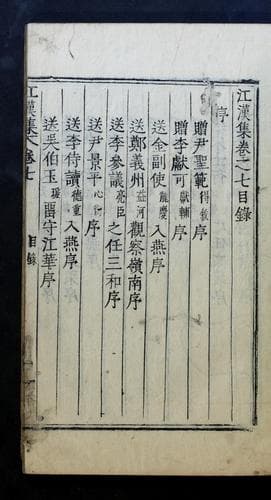 江漢集卷之七目錄
序
贈尹聖範得敘序
贈李獻可獻輔序
送金副使熤慶入燕序
送鄭義州益河觀察嶺南序
送李參議亮臣之任三和序
送尹景平心衡序
送李侍讀德重入燕序
送吳伯玉瑗留守江華序
江漢集 卷七 目錄